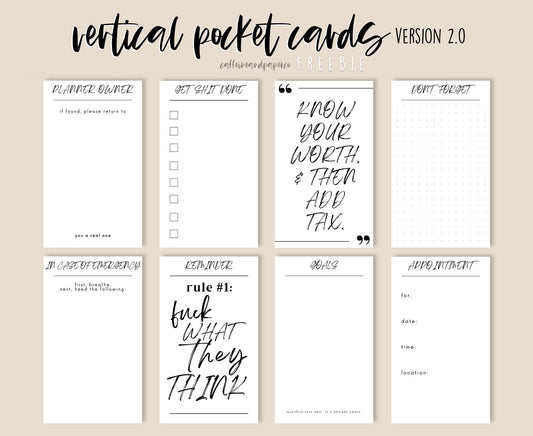 vertical pocket cards VERSION 2.0
caffeineandpaperco FREEBIE
PLANNER OWNER
if found, please return to:
you a real one
GET SHIT DONE
“
KNOW
YOUR
WORTH.
& THEN
ADD
TAX.
”
DONT FORGET
IN CASE OF EMERGENCY
first, breathe.
next, heed the following:
REMINDER
rule #1:
fuck
WHAT
they
THINK
GOALS
manifest that shit. it's already yours.
APPOINTMENT
for:
date:
time:
location: